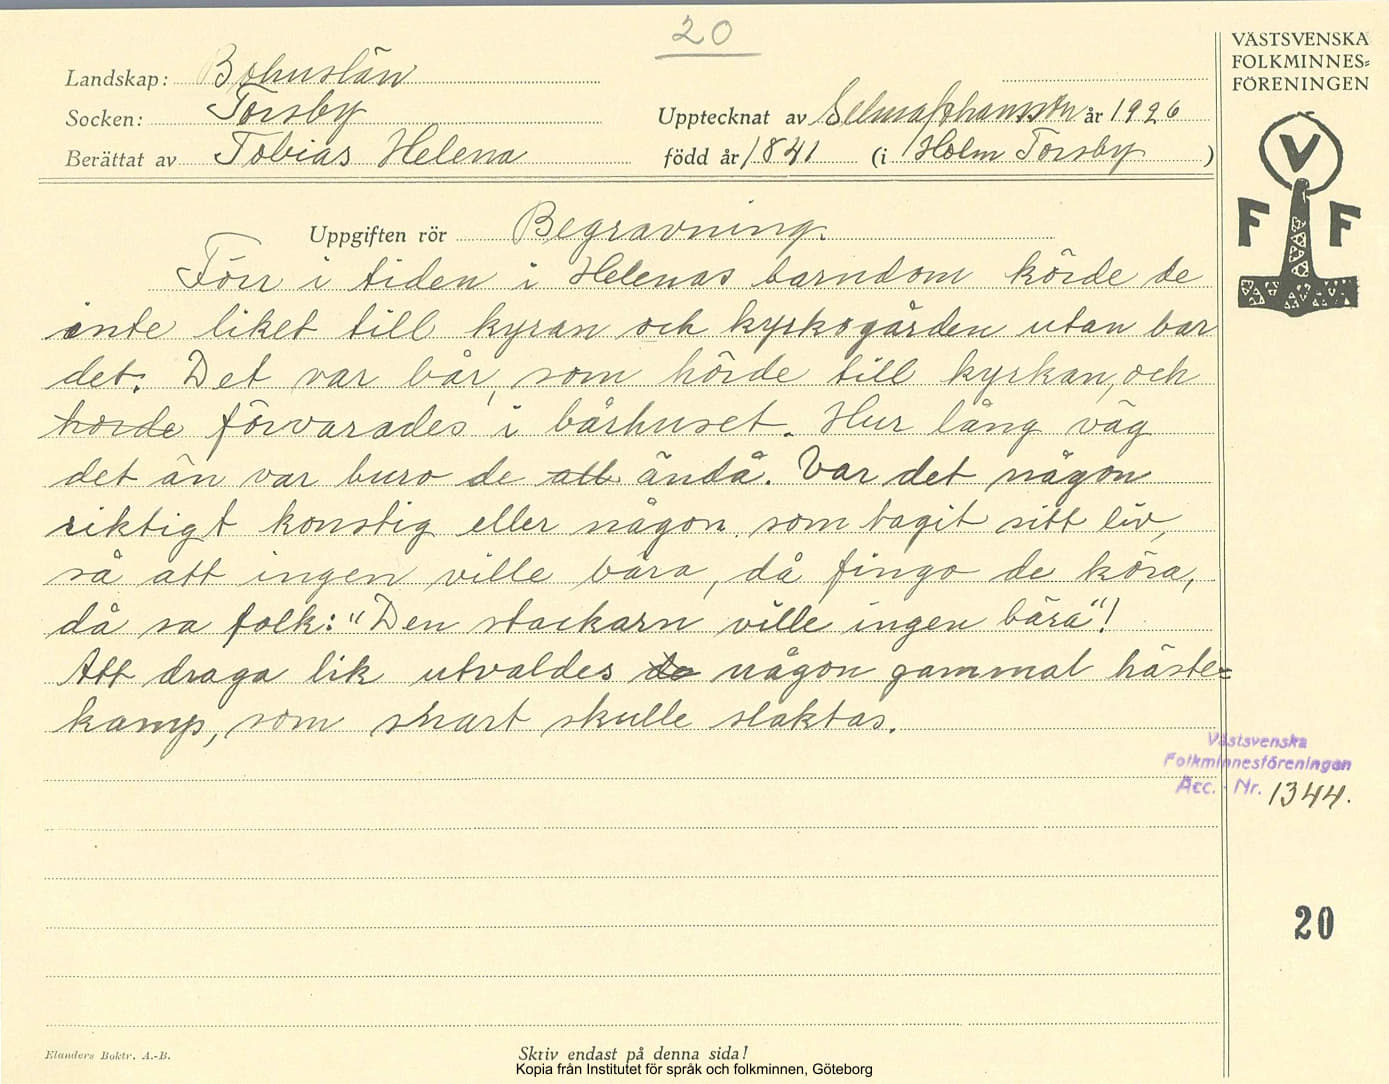 20
VÄSTSVENSKA
FOLKMINNES=
FÖRENINGEN
V
F F
Landskap: Bohuslän
Socken: Torsby
Upptecknat av Selma Johansson år 1926
Berättat av Tobias Helena
född år 1841 (i Holm Torsby)
Uppgiften rör Begravning.
Förr i tiden i Helenas barndom körde de
inte liket till kyran och kyrkogården utan bar
det. Det var bår, som hörde till kyrkan, och
horde förvarades i bårhuset. Hur lång väg
det än var buro de att ändå. Var det någon
riktigt konstig eller någon som tagit sitt liv,
så att ingen ville bära, då fingo de köra,
då sa folk: "Den stackarn ville ingen bära"!
Att draga lik utvaldes de någon gammal häste=
kamp, som snart skulle slaktas.
Västsvenska
Folkminnesföreningen
Acc. - Nr. 1344.
20
Elanders Boktr. A.-B.
Skriv endast på denna sida!
Kopia från Institutet för språk och folkminnen, Göteborg